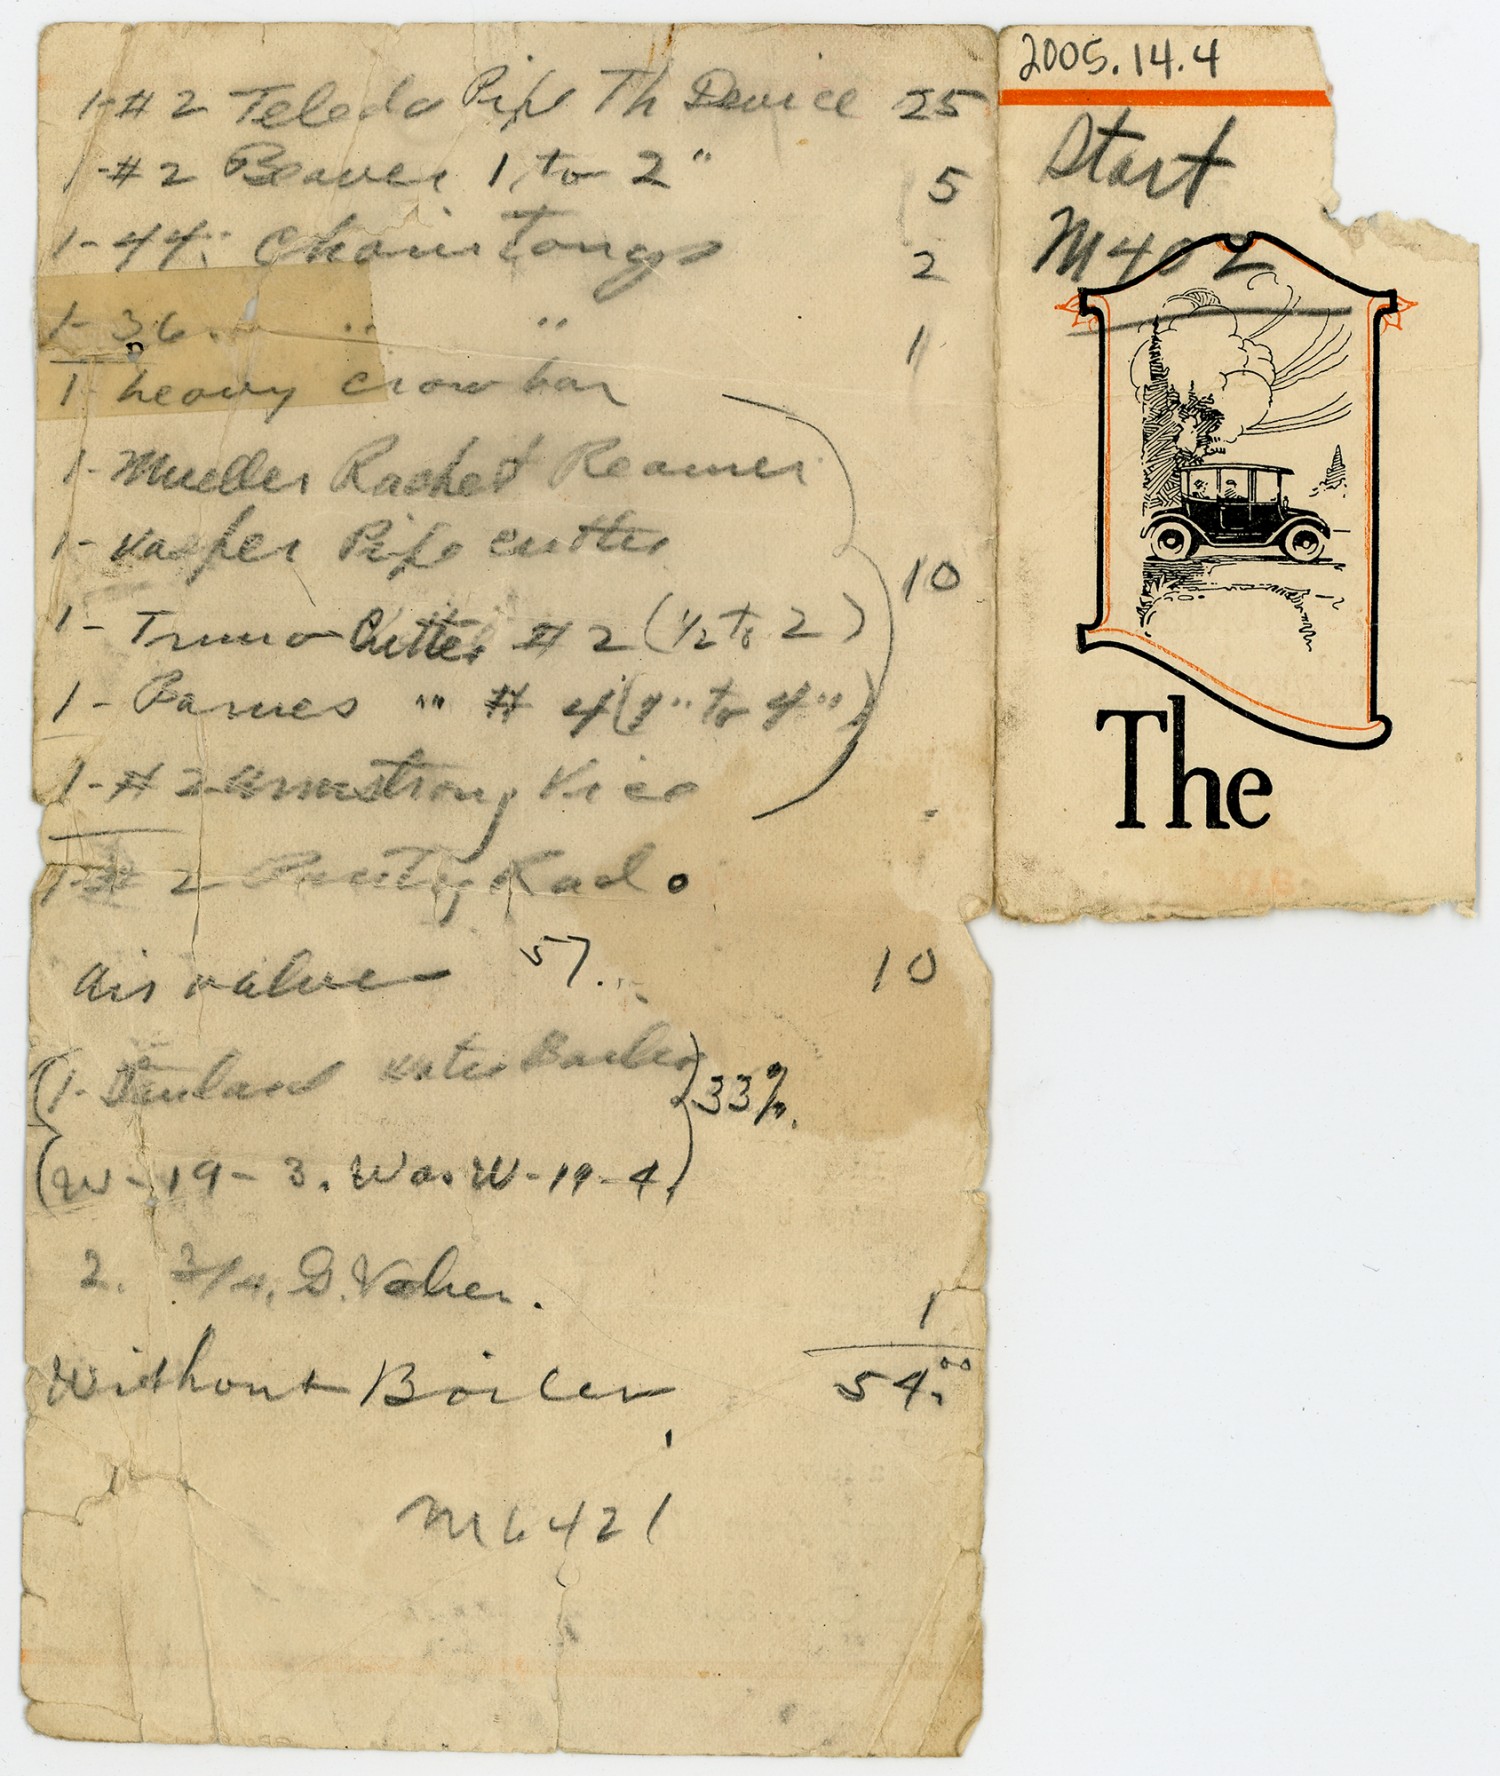 1-#2 Teledo Pipe Th Device 25
1-#2 Beaver 1 to 2" 5
1-44" Chain Tongs 2
1-36. " " 1
1- heavy crow bar
1- Mueller Rachet Reamer
1- Kasper Pipe cutter
10
1- Trimo Cutter #2 (1/2 to 2)
1- Barnes " #4 (1" to 4")
1-#2 Armstrong Vice
1-#2
air valve 57. 10
1- water Boiler
33%.
W-19-3. Was W-19-4.
2. 3/4, G. Valves.
1
Without Boiler 54.00
M6421
2005.14.4
Start
M402
The